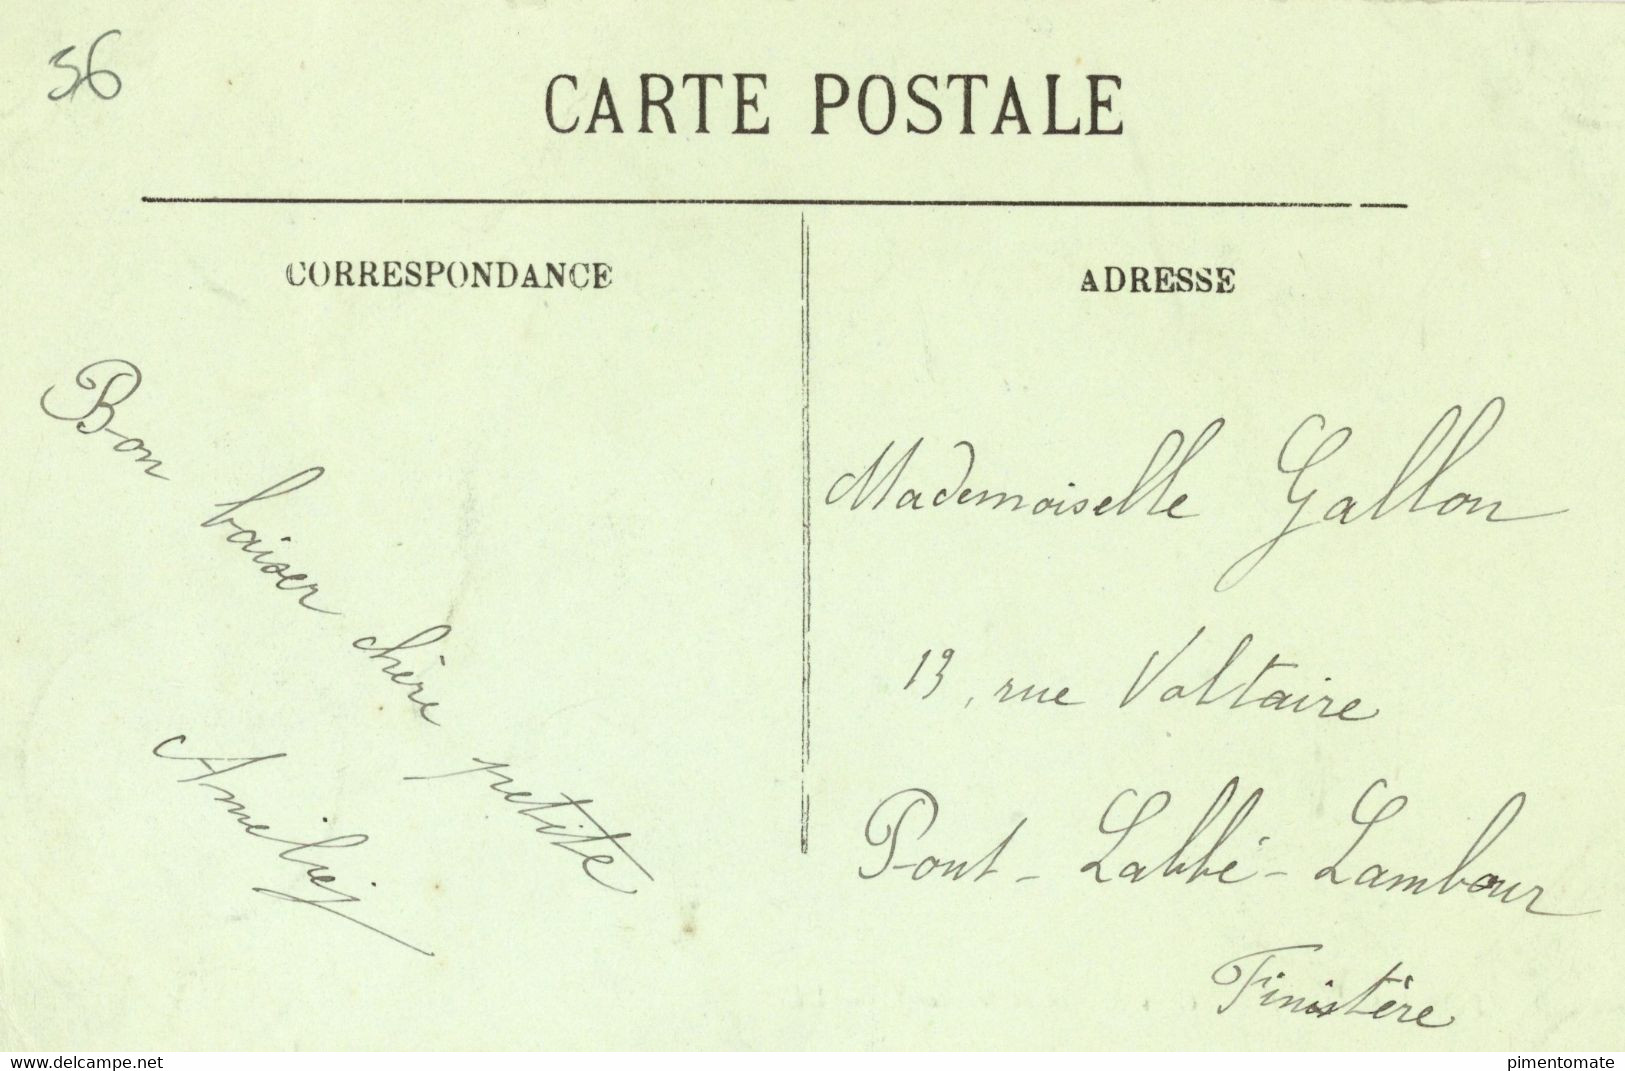 56
CARTE POSTALE
CORRESPONDANCE
ADRESSE
Bon baiser chère petite
Mademoiselle Gallon
13, rue Voltaire
Pont-Labbé-Lambour
Finistère
www.delcampe.net
pimentomate